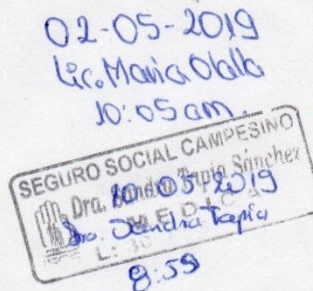 02-05-2019
Lic. Maria Olalla
10:05 am.
SEGURO SOCIAL CAMPESINO
Dra. Sandra Tapia Sánchez
10-05-2019
MEDICA
Dra. Sandra Tapia
L: 30
8:59